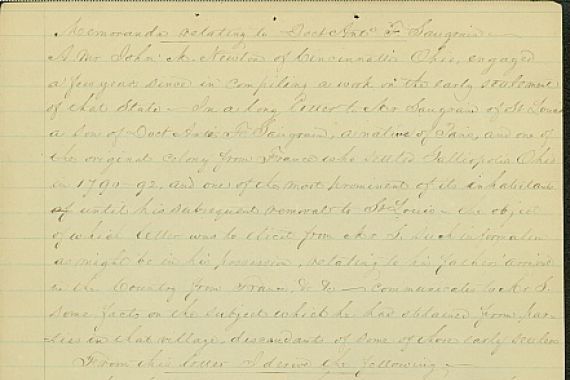 Memoranda relating to Doct Ant. F. Saugrain
A Mr John M. Newton of Cincinnati Ohio, engaged
a few years since in compiling a work on the early settlement
of that State – In a long letter to Mr Saugrain of St Louis
a son of Doct Ant. F. Saugrain, a native of Paris, and one of
the original colony from France who settled Gallipolis Ohio
in 1790-92, and one of the most prominent of its inhabitants
until his subsequent removal to St Louis – the object
of which letter was to elicit from Mr S. such information
as might be in his possession, relating to his father's arrival
in the Country from France, &c &c – communicates to Mr S.
some facts on the subject which he had obtained from par-
ties in that village, descendants of some of those early settlers
From this letter I derive the following –